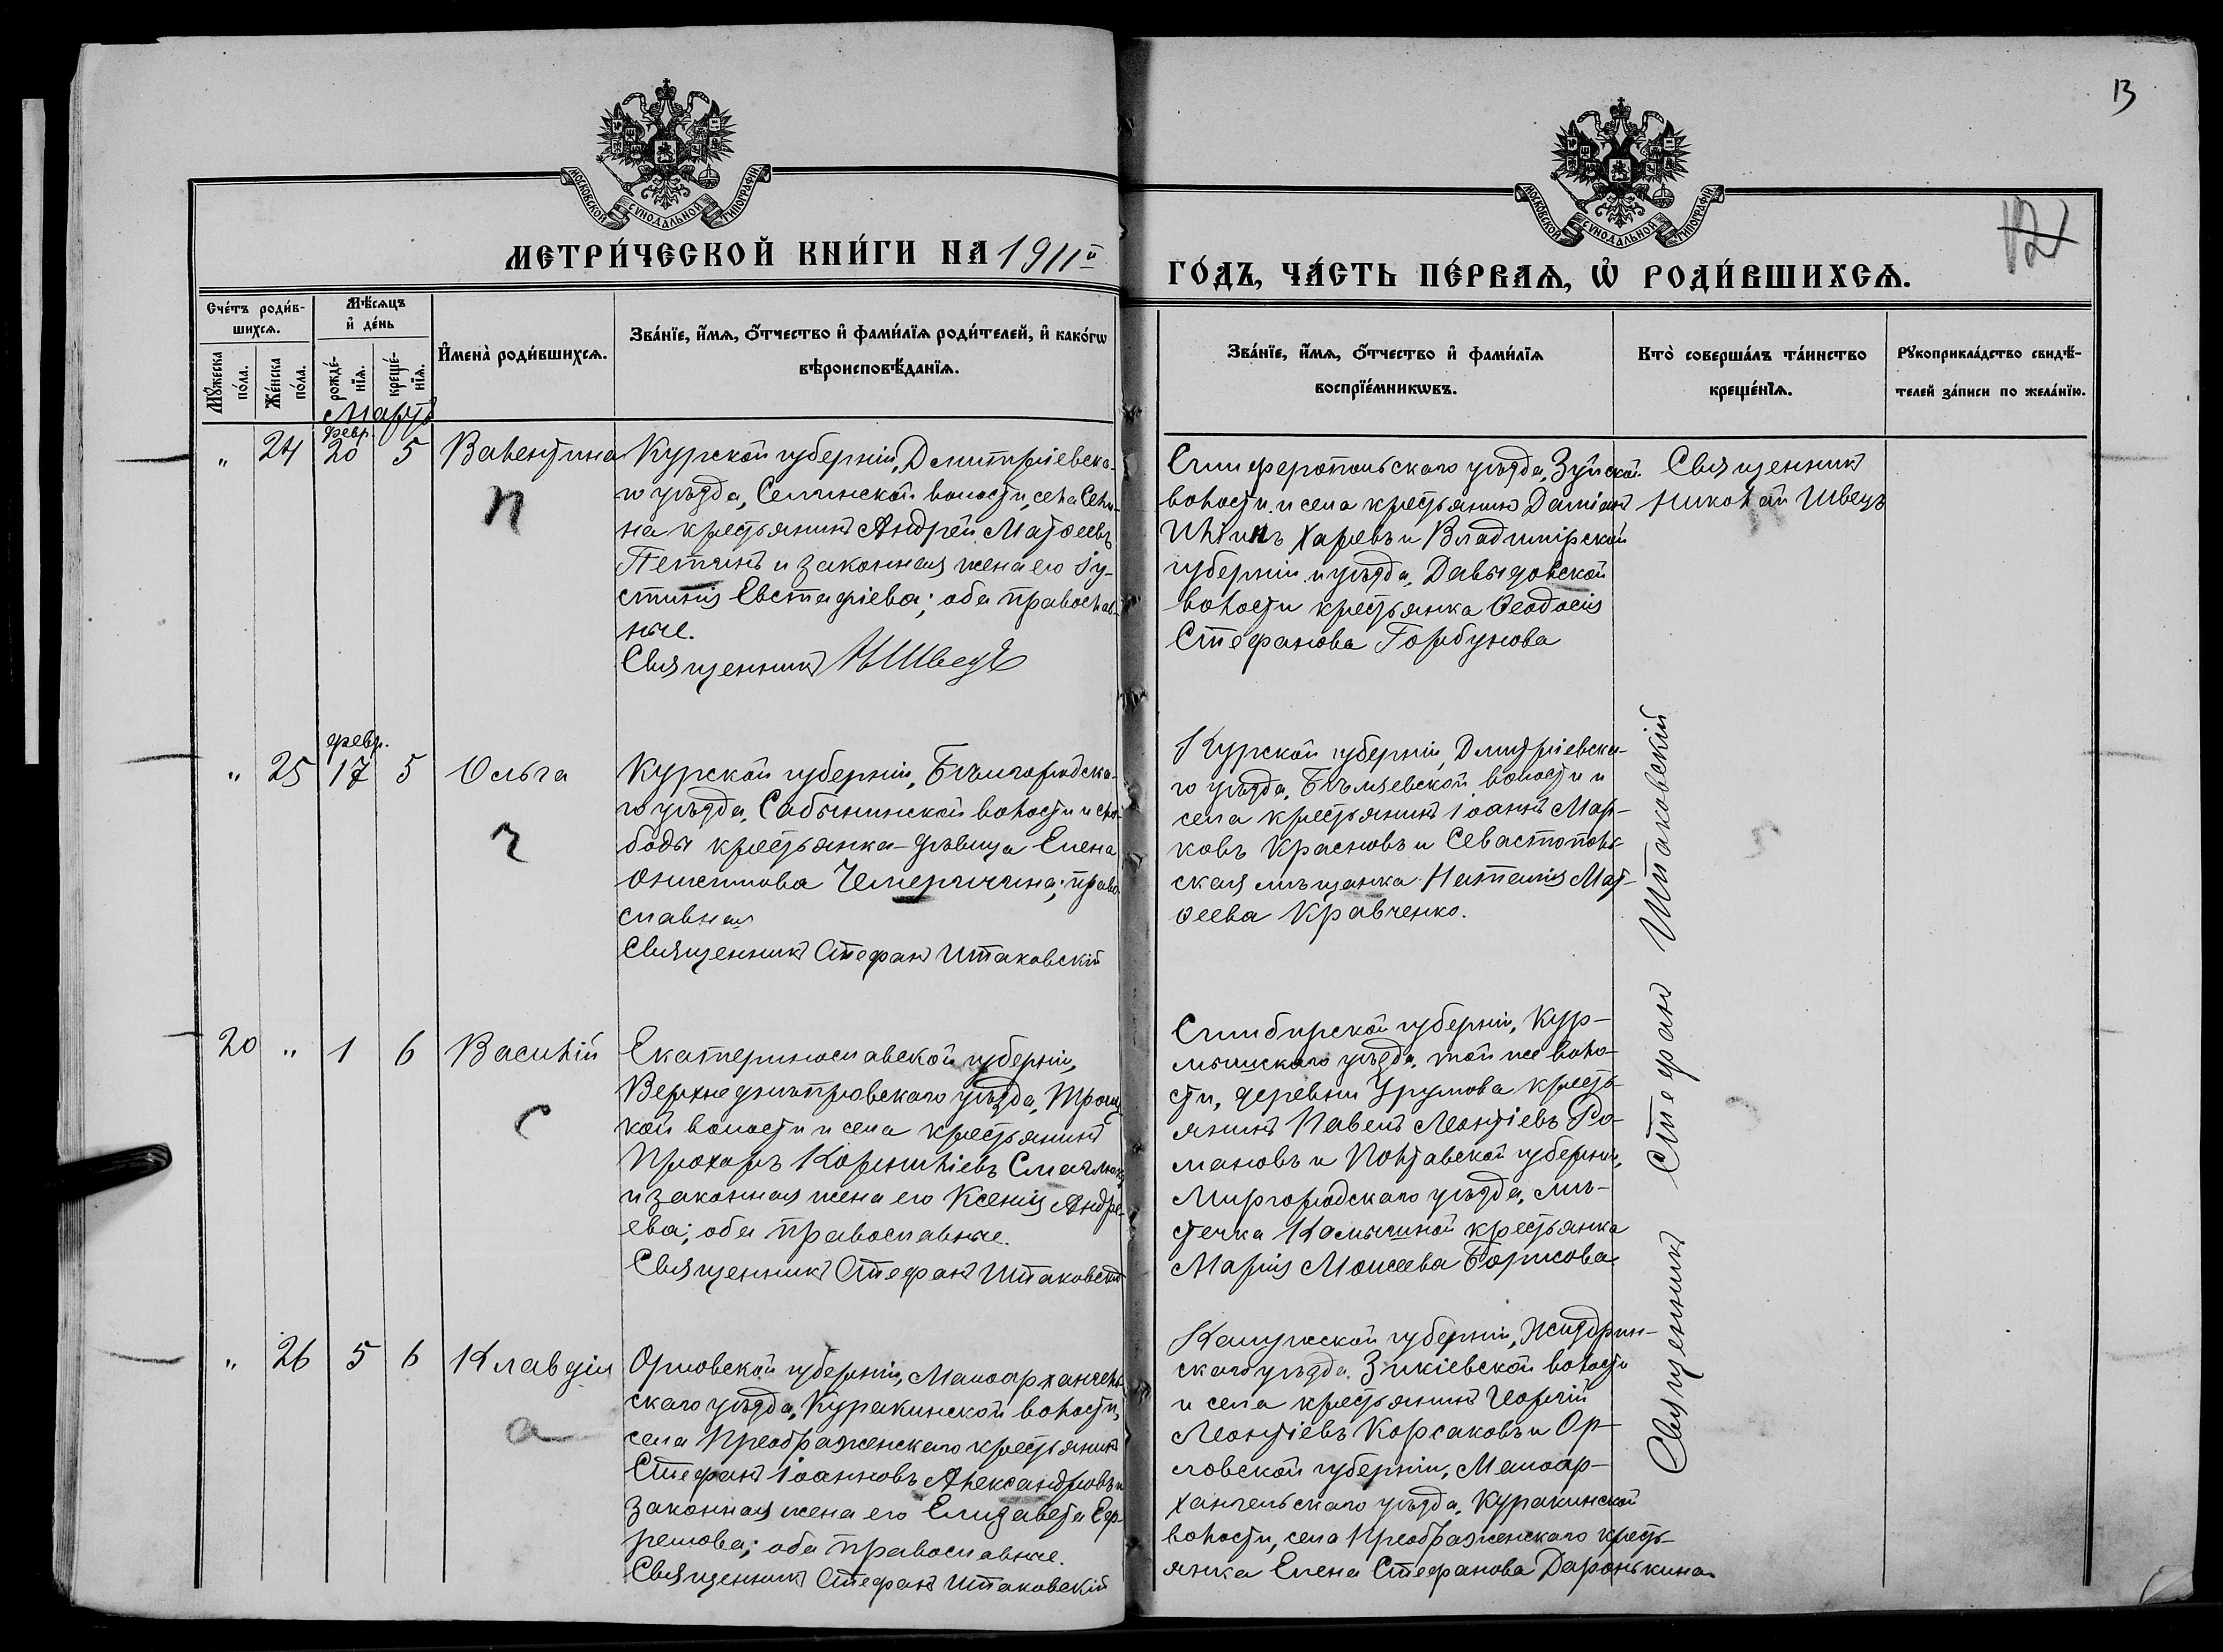 13
12
МОСКОВСКОЙ СѴНОДАЛЬНОЙ ТИПОГРАФІИ
МОСКОВСКОЙ СѴНОДАЛЬНОЙ ТИПОГРАФІИ
МЕТРИ́ЧЕСКОЙ КНИ́ГИ НА 1911й
ГО́ДЪ, ЧА́СТЬ ПЕ́РВАѦ, Ѡ҆ РОДИ́ВШИХСѦ.
Сче́тъ роди́в-
шихсѧ.
Мꙋ́жеска
по́ла.
Же́нска
по́ла.
Мѣ́сѧцъ
и҆ де́нь
рожде́-
нїѧ.
креще́-
нїѧ.
И҆мена̀ роди́вшихсѧ.
Зва́нїе, и҆́мѧ, ѻ҆́тчество и҆ фами́лїѧ роди́телей, и҆ како́гѡ
вѣроисповѣ́данїѧ.
Зва́нїе, и҆́мѧ, ѻ҆́тчество и҆ фами́лїѧ
воспрїе́мникѡвъ.
Кто̀ соверша́лъ та́инство
креще́нїѧ.
Рꙋкоприкла́дство свидѣ́-
телей за́писи по жела́нїю.
Мартъ
февр.
" 24 20 5 Валентина
п
Курской губерніи, Дмитріевска-
го уѣзда, Селинской волости, села Сели-
на крестьянинъ Андрей Матѳеевъ
Петинъ и законная жена его Іу-
стинія Евстафіева; оба православ-
ные.
Священникъ Н Швецъ
Симферопольскаго уѣзда, Зуйской
волости и села крестьянинъ Даміанъ
Ильинъ Харевъ и Владимірской
губерніи и уѣзда, Давыдовской
волости крестьянка Ѳеодосія
Стефанова Горбунова
Священникъ
Николай Швецъ
февр.
" 25 17 5 Ольга
ч
Курской губерніи, Бѣлгородска-
го уѣзда, Сабынинской волости и сло-
боды крестьянка-дѣвица Елена
Онисимова Чемеричина; право-
славная
Священникъ Стефанъ Штаковскій
Курской губерніи, Дмитріевска-
го уѣзда, Бѣляевской волости и
села крестьянинъ Іоаннъ Мар-
ковъ Красновъ и Севастополь-
ская мѣщанка Наталія Мат-
ѳеева Кравченко.
20 " 1 6 Василій
с
Екатеринославской губерніи,
Верхнеднѣпровскаго уѣзда, Троиц
кой волости и села крестьянинъ
Прохоръ Корниліевъ
и законная жена его Ксенія Андре-
ева; оба православные.
Священникъ Стефанъ Штаковскій
Симбирской губерніи, Кур-
мышскаго уѣзда, той же воло-
сти, деревни Урумова кресть-
янинъ Павелъ Леонтіевъ Ро-
мановъ и Полтавской губерніи,
Миргородскаго уѣзда, мѣ-
стечка Комышной крестьянка
Марія Моисеева Борисова
" 26 5 6 Клавдія
а
Орловской губерніи, Малоархангель-
скаго уѣзда, Куракинской волости,
села Преображенскаго крестьянинъ
Стефанъ Іоанновъ Александровъ и
законная жена его Елизавета Еф-
ремова; оба православные.
Священникъ Стефанъ Штаковскій
Калужской губерніи, Жиздрин-
скаго уѣзда, Зикіевской волости
и села крестьянинъ Георгій
Леонтіевъ Корсаковъ и Ор-
ловской губерніи, Малоар-
хангельскаго уѣзда, Куракинской
волости, села Преображенскаго кресть-
янка Елена Стефанова Даронькина.
Священникъ Стефанъ Штаковскій